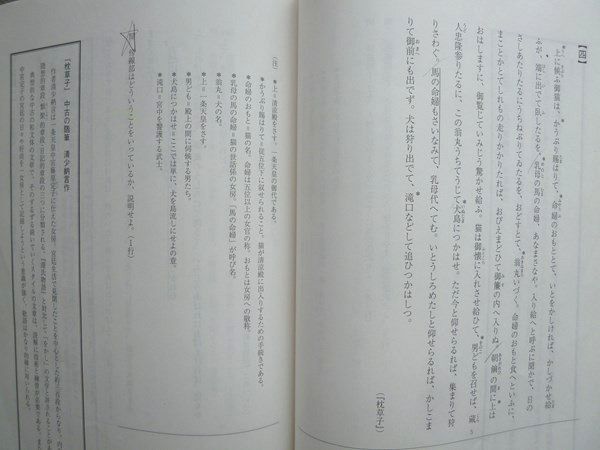 【四】
上に候ふ御猫は、かうぶり賜はりて、命婦のおもととて、いとをかしければ、かしづかせ給
ふが、端に出でて臥したるを、乳母の馬の命婦、「あなまさなや。入り給へ」と呼ぶに聞かで、日の
さしあたりたるにうちねぶりてゐたるを、おどすとて、「翁丸いづら。命婦のおもと食へ」といふに、
まことかとてしれもの走りかかりたれば、おびえまどひて御簾の内へ入りぬ。朝餉の間に上は
おはしますに、御覧じていみじう驚かせ給ふ。猫は御懐に入れさせ給ひて、男ども召せば、蔵
人忠隆参りたるに、「この翁丸うちてうじて犬島につかはせ。ただ今」と仰せらるれば、集まりて狩
りさわぐ。馬の命婦もさいなみて、「乳母代へてむ。いとうしろめたし」と仰せらるれば、かしこま
りて御前にも出でず。犬は狩り出でて、滝口などして追ひつかはしつ。
（『枕草子』）
5
（注）
＊上＝清涼殿をさす。一条天皇の御代である。
＊かうぶり賜はりて＝従五位下に叙せられること。猫が清涼殿に出入りするための手続きである。
＊命婦のおもと＝猫の名。命婦は五位以上の女官の称。おもとは女房への敬称。
＊乳母の馬の命婦＝猫の世話係の女房。「馬の命婦」が呼び名。
＊翁丸＝犬の名。
＊上＝一条天皇をさす。
＊男ども＝殿上の間に伺候する男たち。
＊犬島につかはせ＝ここでは単に、犬を島流しにせよの意。
＊滝口＝宮中を警護する武士。
問 傍線部はどういうことをいっているか、説明せよ。（1行）
『枕草子』 中古の随筆 清少納言作